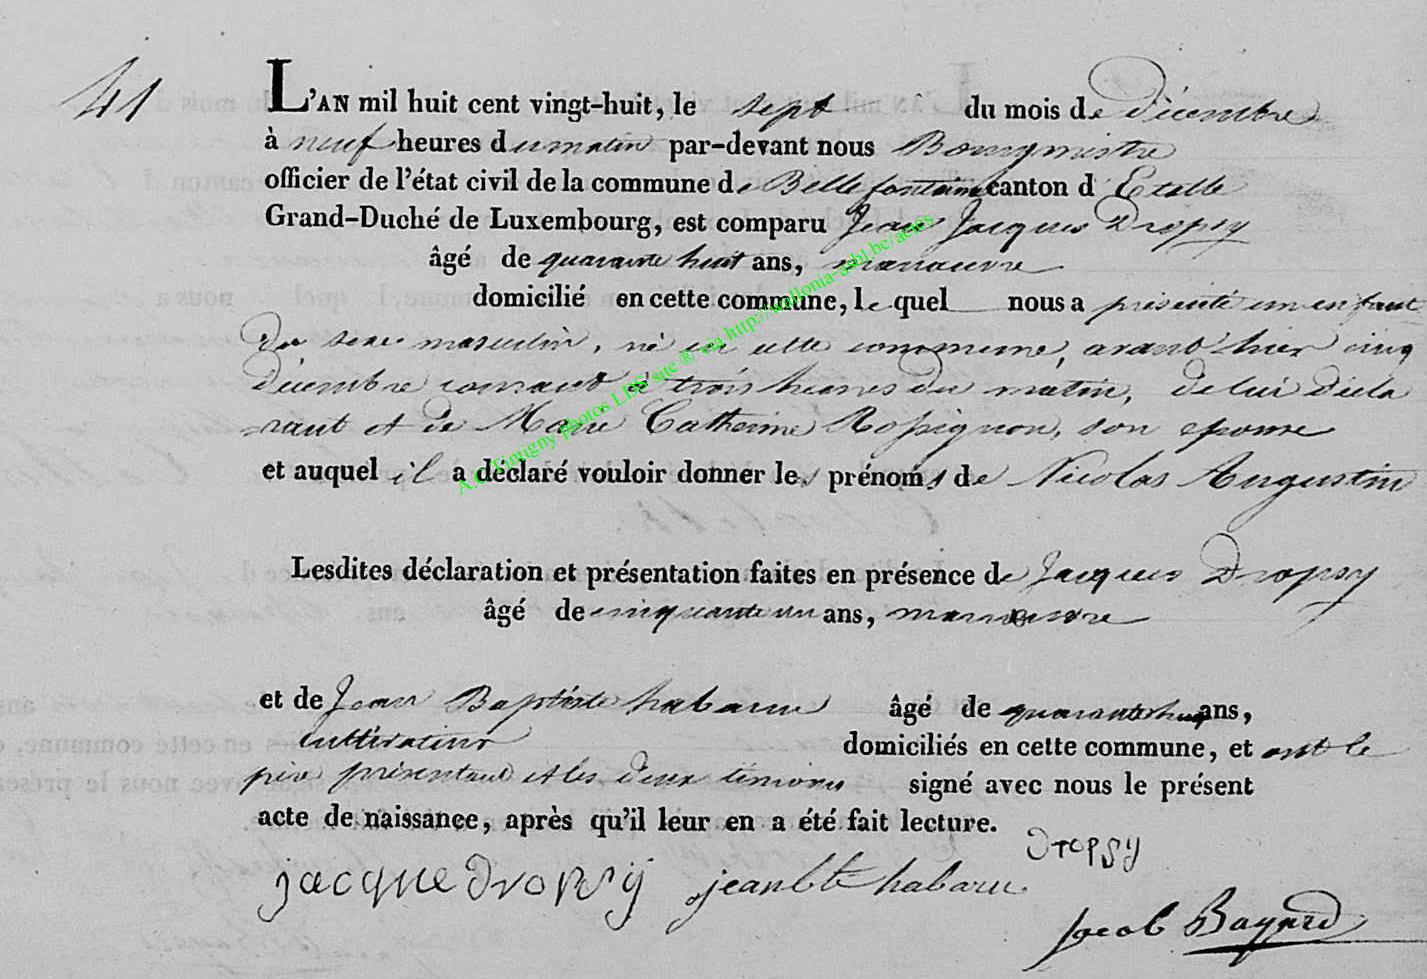 41
L'AN mil huit cent vingt-huit, le sept du mois de décembre
à neuf heures du matin par-devant nous Bourgmestre
officier de l'état civil de la commune de Bellefontaine canton d'Etalle
Grand-Duché de Luxembourg, est comparu Jean Jacques Dropsy
âgé de quarante huit ans, manœuvre
domicilié en cette commune, lequel nous a présenté un enfant
du sexe masculin, né en cette commune, avant hier cinq
décembre courant à trois heures du matin, de lui décla
rant et de Marie Catherine Rossignon, son epouse
et auquel il a déclaré vouloir donner les prénoms de Nicolas Augustin
Lesdites déclaration et présentation faites en présence de Jacques Dropsy
âgé de cinquante un ans, manœuvre
et de Jean Baptiste habaru âgé de quarante ans,
cultivateur domiciliés en cette commune, et ont le
père présentant et les deux témoins signé avec nous le présent
acte de naissance, après qu'il leur en a été fait lecture.
Dropsy
jacque Dropsy jean bte habaru
Jacob Bayard
A.C. Tintigny photos LDS site ® via http://wallonia-asbl.be/actes